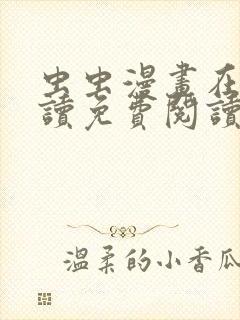 虫虫漫畫在
讀免費閱讀
溫柔的小香瓜